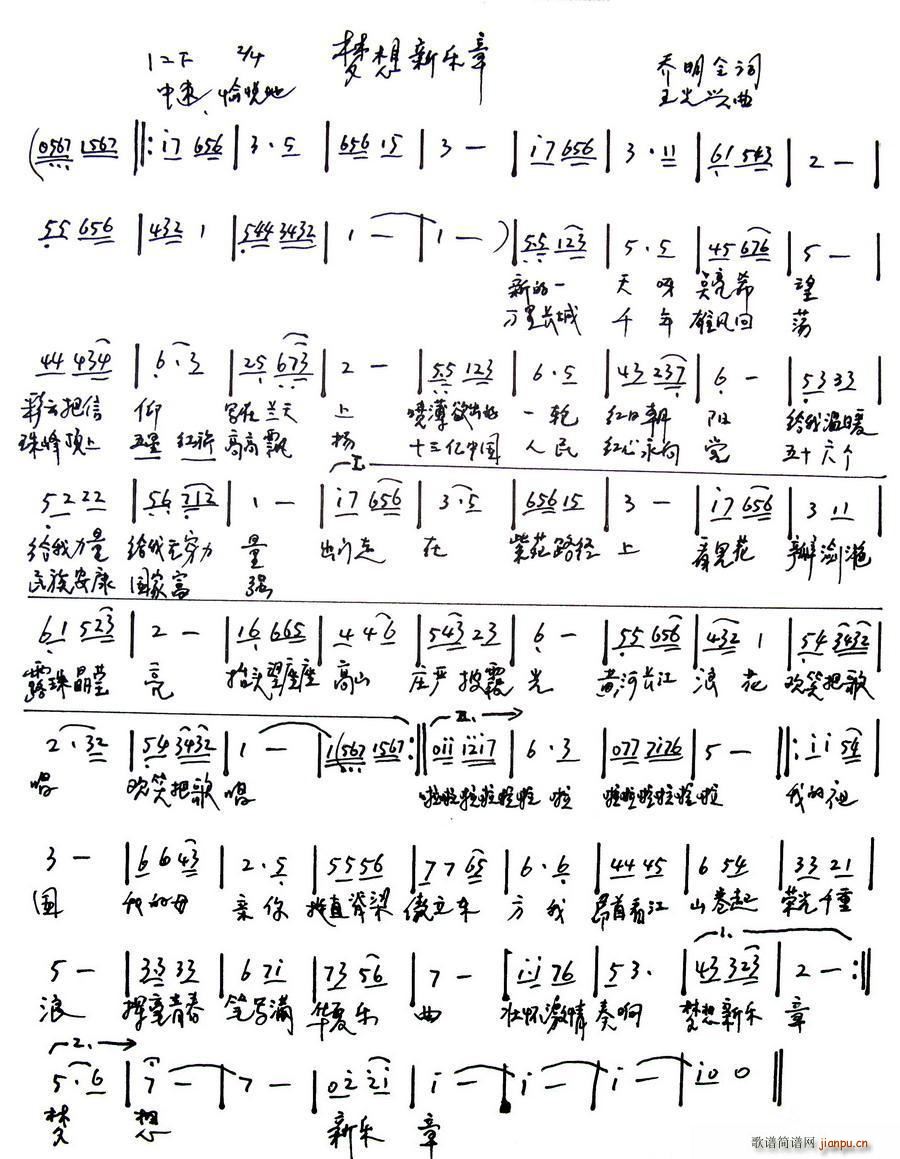 梦想新乐章
1=F 2/4 乔明全词
中速 愉悦地 王光兴曲
(0567 1567 ‖: i7 656 | 3·5 | 656 15 | 3 — | i7 656 | 3·11 | 61 543 | 2 — |
55 656 | 432 1 | 544 3432 | 1 — | 1 — ) | 55 123 | 5·5 | 45 676 | 5 — |
新的一 天 呀 亮希 望
万里长城 千 年 雄风回 荡
44 434 | 6·3 | 25 673 | 2 — | 55 123 | 6·5 | 43 237 | 6 — | 53 33 |
彩云把信 仰 写在兰天 上 喷薄欲出的 一 轮 红日朝 阳 给我温暖
珠峰顶上 五星 红旗 高高飘 扬 十三亿中国 人 民 红心永向 党 五十六个
I.
5222 | 56 212 | 1 — | i7 656 | 3·5 | 656 15 | 3 — | i7 656 | 3 11 |
给我力量 给我无穷力 量 出门走 在 紫花路径 上 看见花 瓣
民族安康 国家富 强
61 523 | 2 — | 16 665 | 4 46 | 543 23 | 6 — | 55 656 | 432 1 | 54 3432 |
露珠晶莹 亮 抬头望座座 高山 庄严披霞 光 黄河长江 浪 花 欢笑把歌
II.
2·32 | 54 3432 | 1 — | 1(567 1567 :‖ 0ii i2i7 | 6·3 | 077 7i76 | 5 — ‖: i i 54 |
唱 欢笑把歌 唱 啦啦啦啦啦啦 啦 啦啦啦啦啦啦 我的祖
3 — | 66 43 | 2·5 | 5556 | 77 65 | 6·6 | 44 45 | 6 54 | 33 21 |
国 我的母 亲 你 挺直脊梁 傲立东 方 我 昂首看江 山 卷起 荣光千重
1.
5 — | 33 33 | 6 7i | 73 56 | 7 — | i·i 76 | 53· | 43 323 | 2 — :‖
浪 挥童青春 笔写满 华夏乐 曲 壮怀激情 奏响 梦想新乐 章
2.
5·6 | 7 — | 7 — | 02 2i | i — | i — | i — | i0 0 ‖
梦 想 新乐 章
歌谱简谱网
jianpu.cn